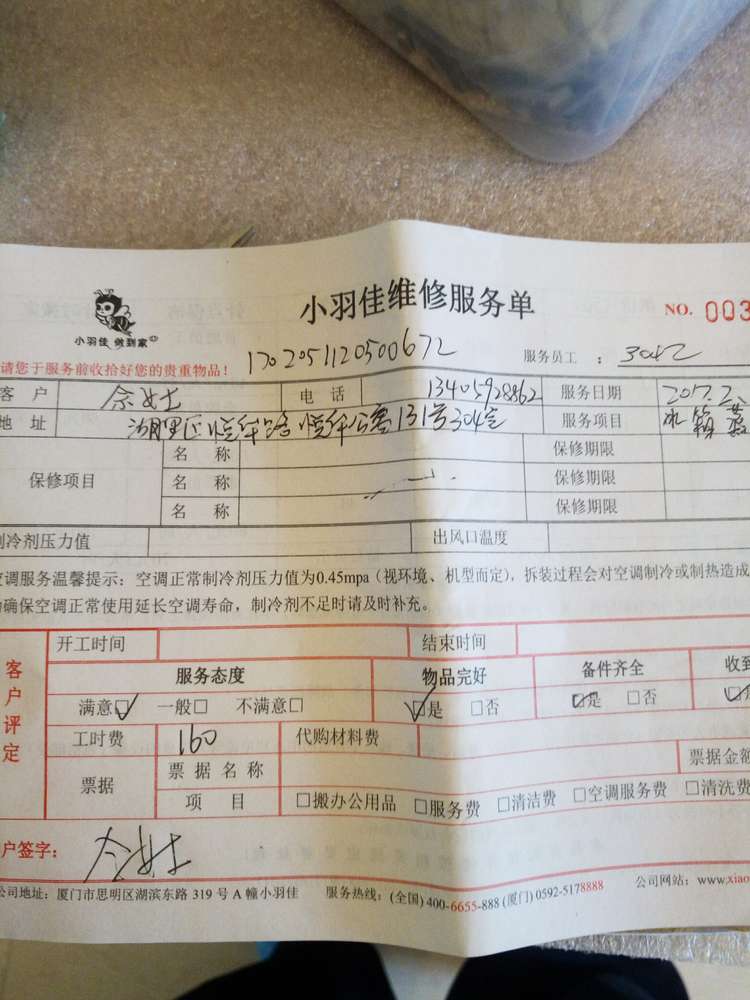 小羽佳维修服务单
NO. 003
小羽佳 做到家
请您于服务前收拾好您的贵重物品！
1702051120500672
服务员工 ： 3042
客 户 余女士 电 话 13401928862 服务日期 2017.2
地 址 湖里区悦华路悦华公寓131号304室 服务项目 冰箱
保修项目 名 称 保修期限
名 称 保修期限
名 称 保修期限
制冷剂压力值 出风口温度
空调服务温馨提示：空调正常制冷剂压力值为0.45mpa（视环境、机型而定），拆装过程会对空调制冷或制热造成
确保空调正常使用延长空调寿命，制冷剂不足时请及时补充。
客户评定
开工时间 结束时间
服务态度 物品完好 备件齐全 收到
满意☑ 一般□ 不满意□ ☑是 □否 ☑是 □否
工时费 160 代购材料费
票据 票据名称 票据金额
项 目 □搬办公用品 □服务费 □清洁费 □空调服务费 □清洗费
户签字： 余女士
公司地址：厦门市思明区湖滨东路 319 号 A 幢小羽佳 服务热线：(全国) 400-6655-888 (厦门) 0592-5178888 公司网站：www.xiao